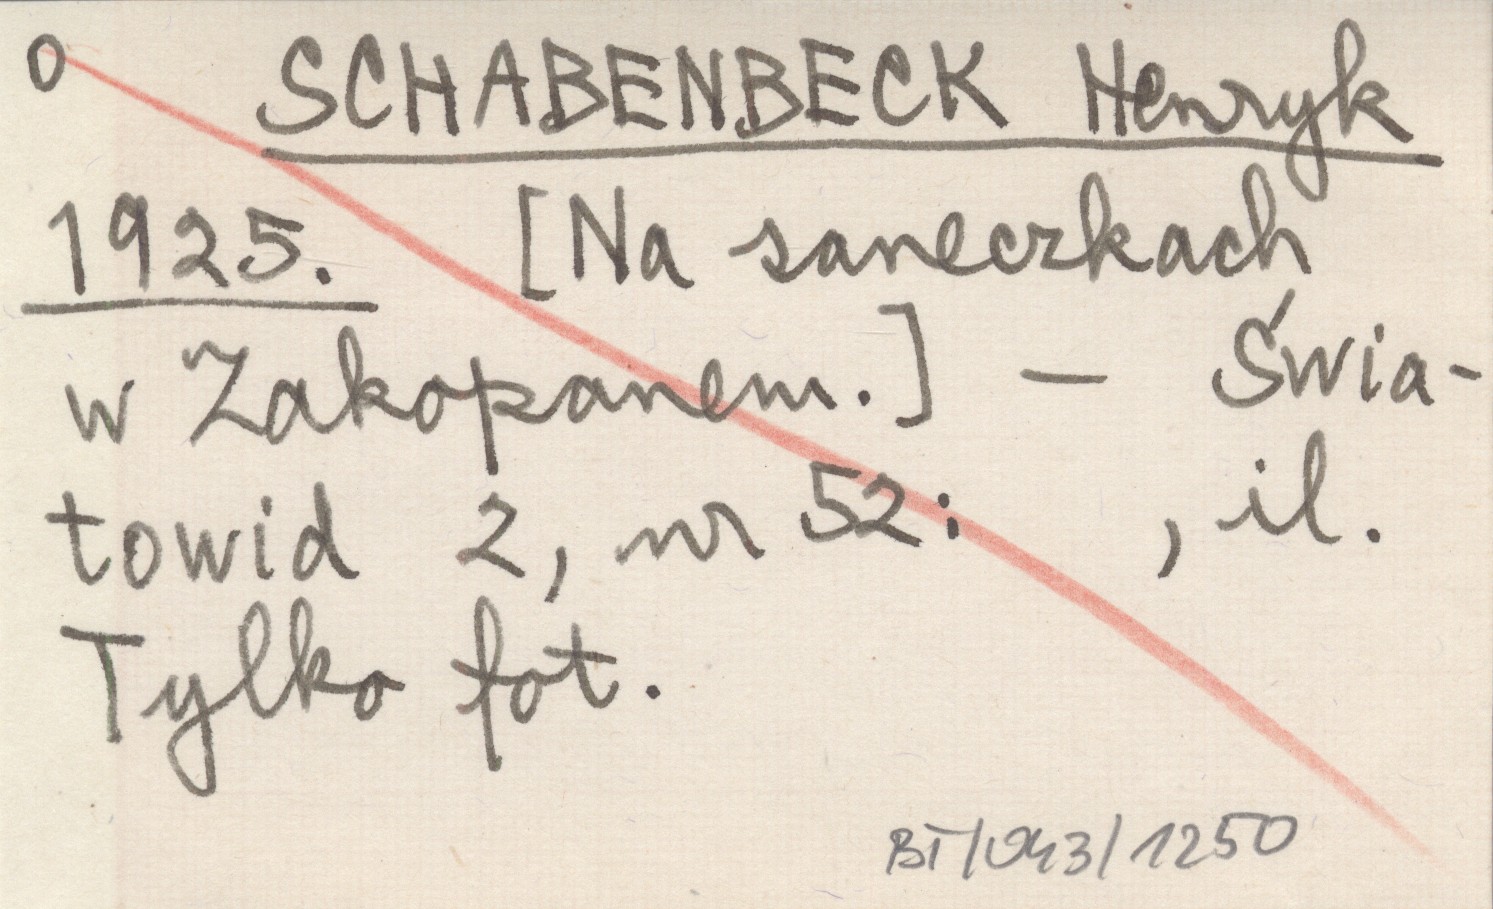 O SCHABENBECK Henryk
1925. [Na saneczkach
w Zakopanem.] — Świa-
towid 2, nr 52: , il.
Tylko fot.
BT/043/1250